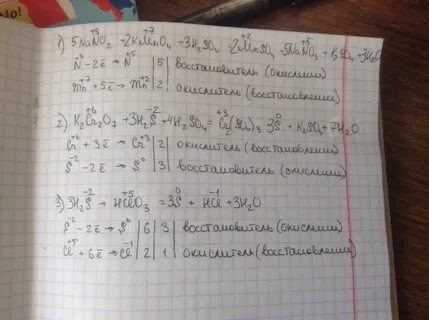 +3 +7 +2 +5
1) 5NaNO₂ + 2KMnO₄ + 3H₂SO₄ = 2MnSO₄ + 5NaNO₃ + K₂SO₄ + 3H₂O
N⁺³ - 2ē → N⁺⁵ | 5 | восстановитель (окисление)
Mn⁺⁷ + 5ē → Mn⁺² | 2 | окислитель (восстановление)
+6 -2 +3 0
2) K₂Cr₂O₇ + 3H₂S + 4H₂SO₄ = Cr₂(SO₄)₃ + 3S + K₂SO₄ + 7H₂O
Cr⁺⁶ + 3ē → Cr⁺³ | 2 | окислитель (восстановление)
S⁻² - 2ē → S⁰ | 3 | восстановитель (окисление)
-2 +5 0 -1
3) 3H₂S + HClO₃ = 3S + HCl + 3H₂O
S⁻² - 2ē → S⁰ | 6 | 3 | восстановитель (окисление)
Cl⁺⁵ + 6ē → Cl⁻¹ | 2 | 1 | окислитель (восстановление)